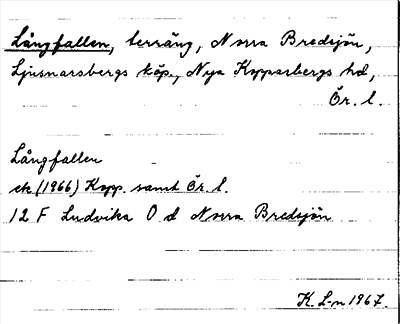 Långfallen, terräng, Norra Bredsjön,
Ljusnarsbergs köp., Nya Kopparbergs hd,
Ör. l.
Långfallen
ek (1966) Kopp. samt Ör. l.
12 F Ludvika O d Norra Bredsjön
K. L-n 1967.